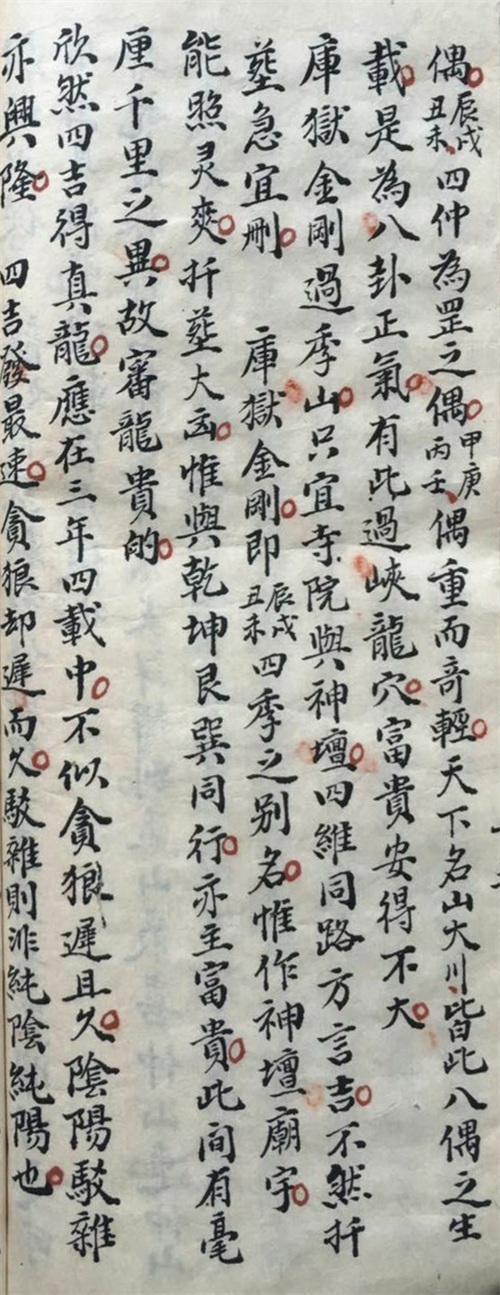 偶辰戌丑未四仲為罡之偶甲庚丙壬偶重而奇輕天下名山大川皆此八偶之生
載是為八卦正氣有此過峽龍穴富貴安得不大
庫獄金剛過季山只宜寺院與神壇四維同路方言吉不然扦
塟急宜刪　庫獄金剛即辰戌丑未四季之别名惟作神壇廟宇
能照灵爽扦塟大凶惟與乾坤艮巽同行亦主富貴此间有毫
厘千里之異故審龍貴的
欣然四吉得真龍應在三年四載中不似貪狼遲且久陰陽駁雜
亦興隆　四吉發最速貪狼却遲而久駁雜則非純陰純陽也